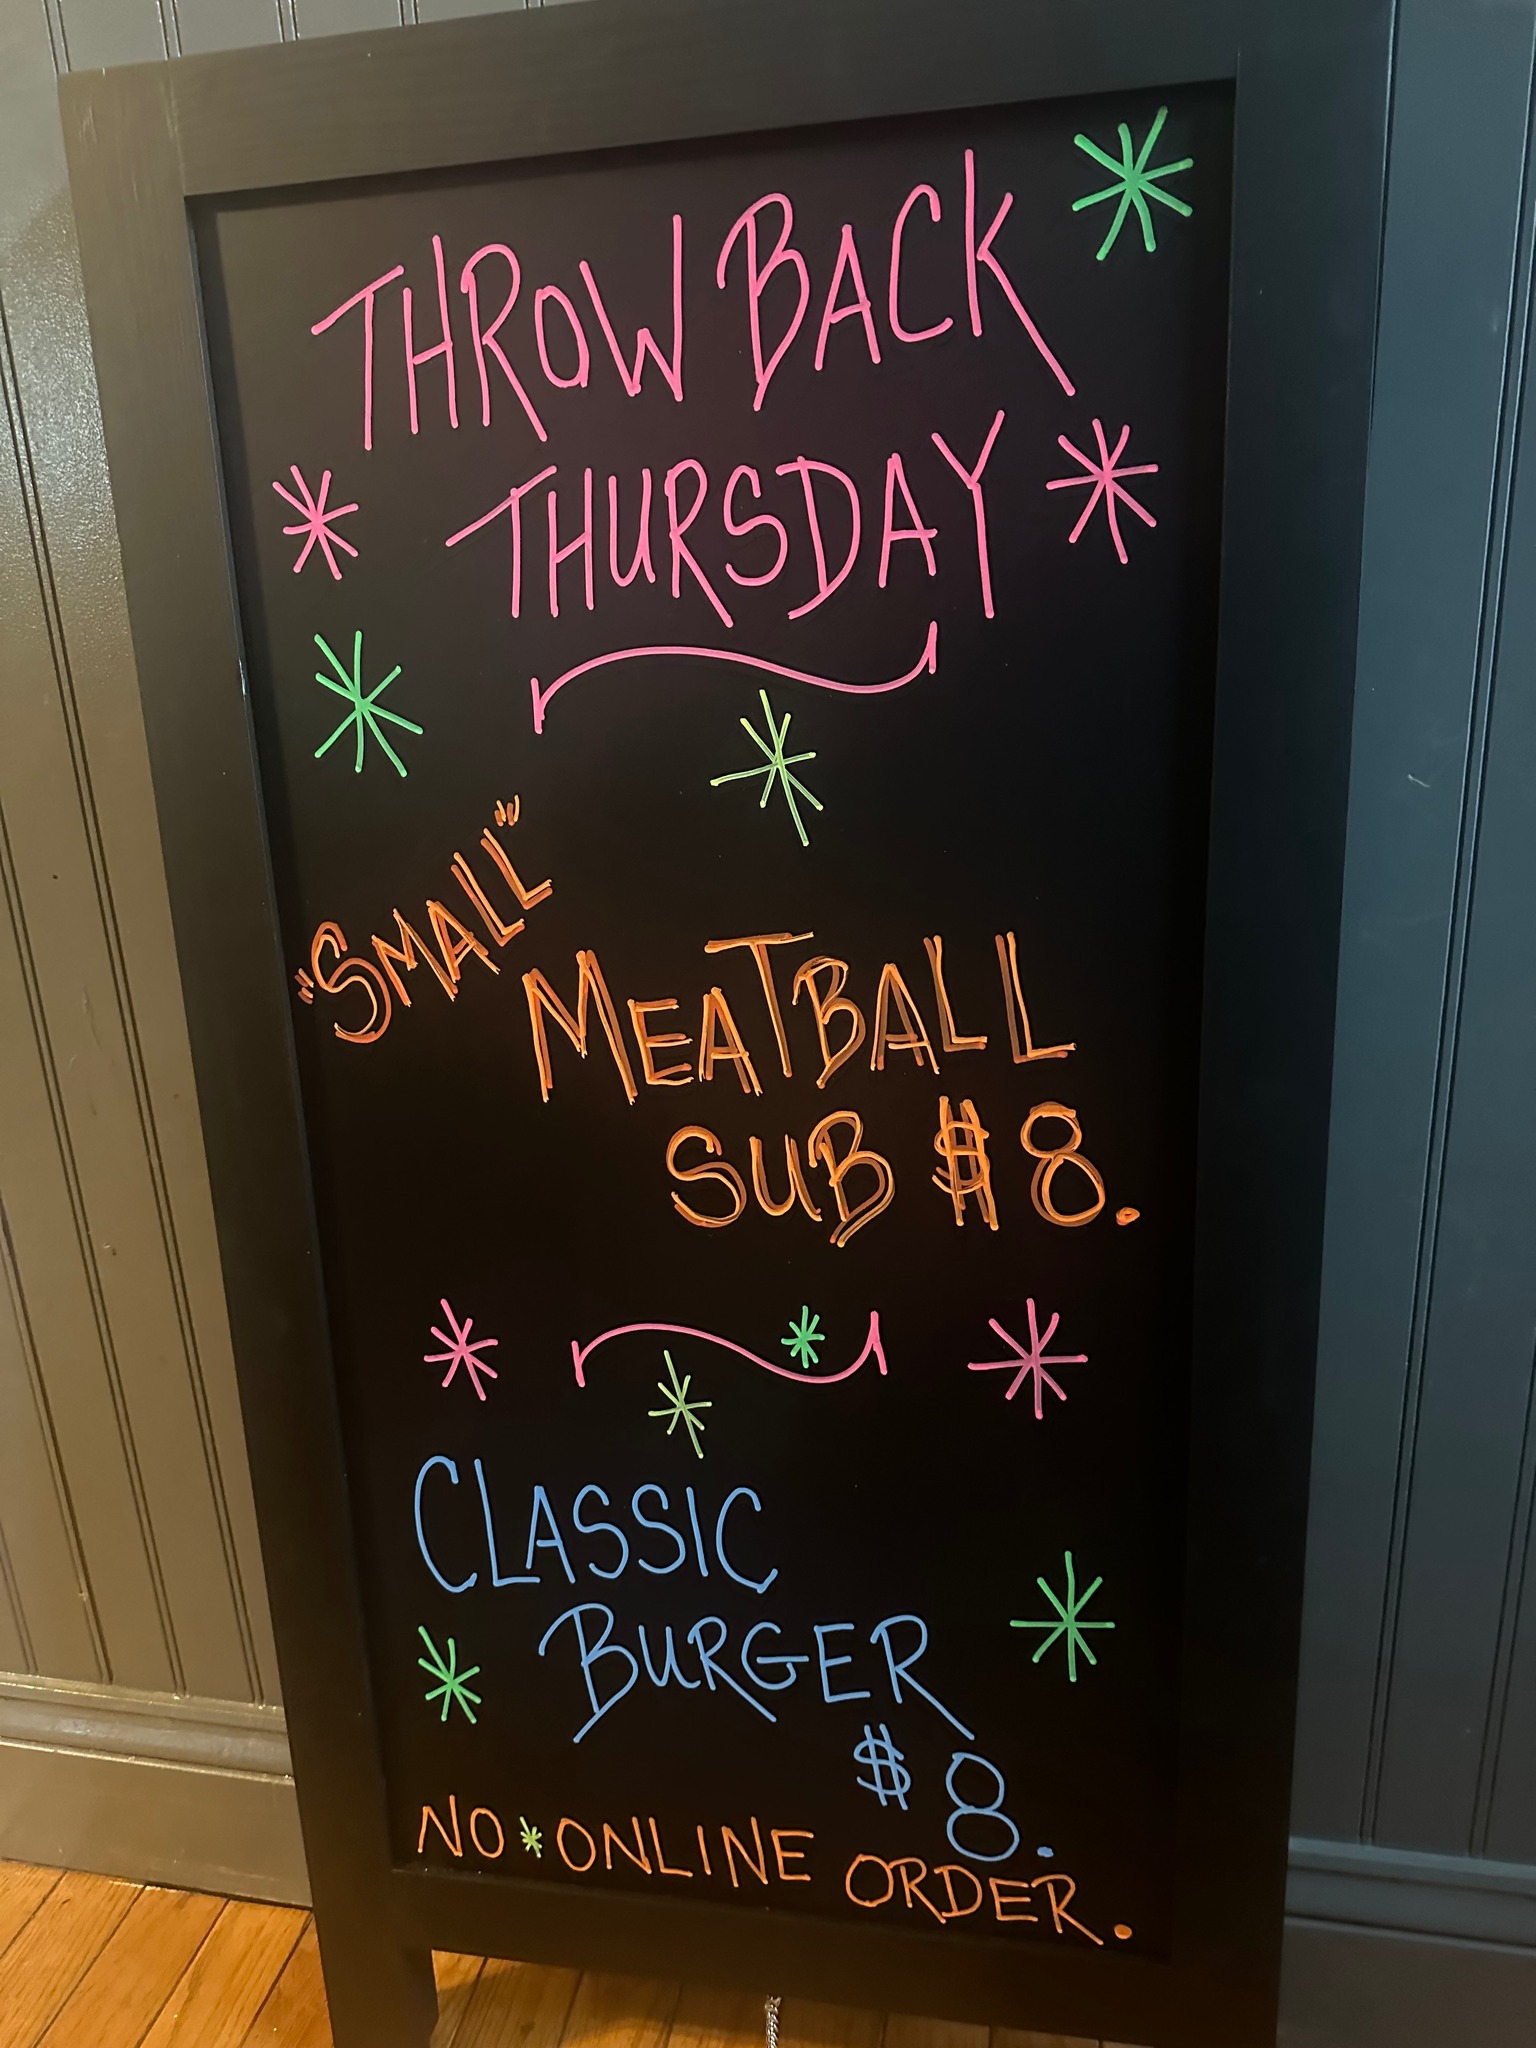 THROW BACK
THURSDAY
"SMALL"
MEATBALL
SUB $8.
CLASSIC
BURGER
$8.
NO*ONLINE ORDER.